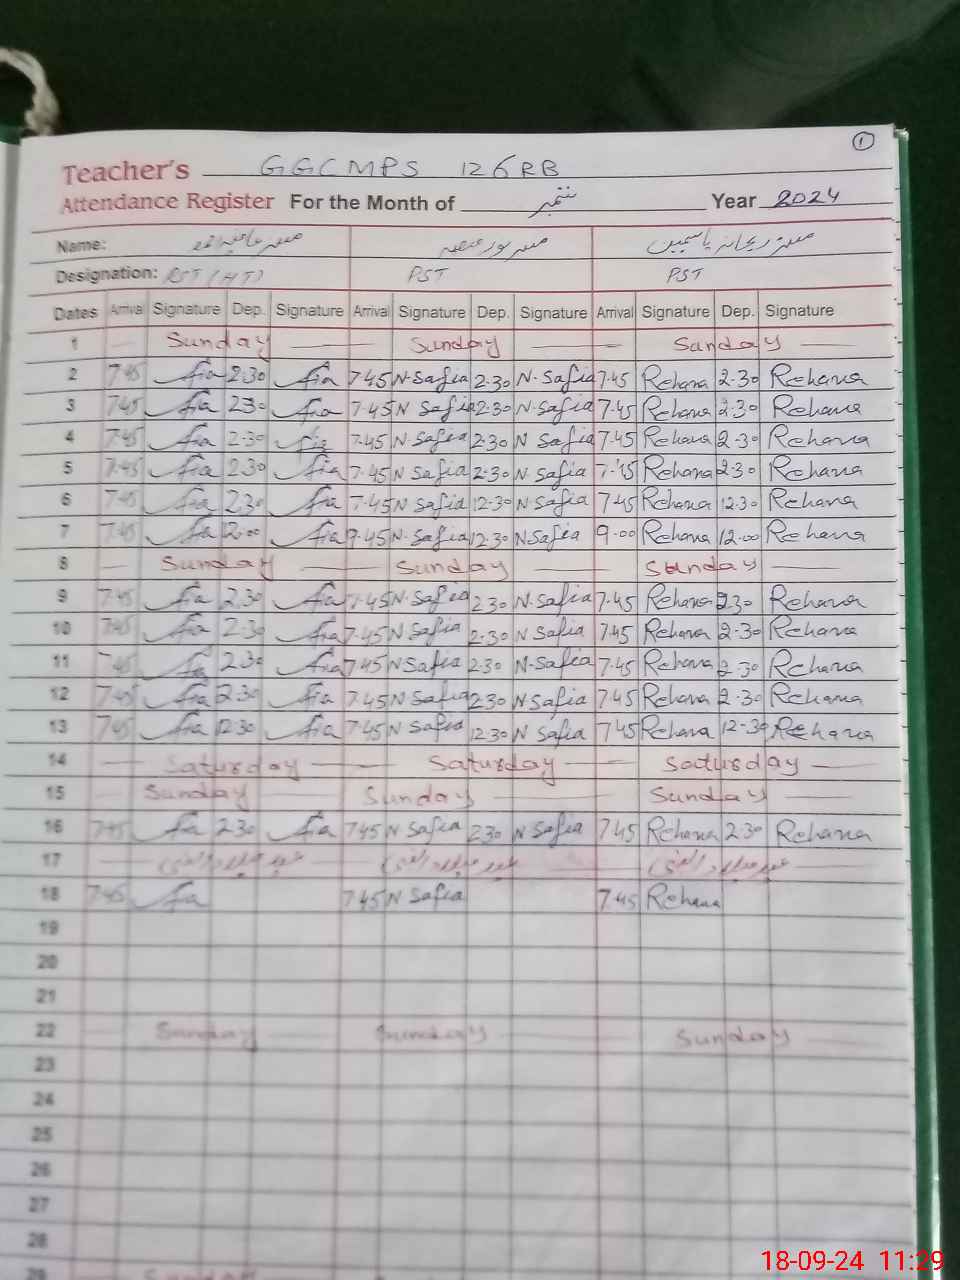 1
Teacher's GGCMPS 126RB
Attendance Register For the Month of ستمبر Year 2024
Name: مسز مسز مسز ریحانہ یاسمین
Designation: PST (HT) PST PST
Dates Arrival Signature Dep. Signature Arrival Signature Dep. Signature Arrival Signature Dep. Signature
1 Sunday Sunday Sunday
2 7.45 Aia 2.30 Aia 7.45 N.Safia 2.30 N.Safia 7.45 Rehana 2.30 Rehana
3 7.45 Aia 2.30 Aia 7.45 N Safia 2.30 N.Safia 7.45 Rehana 2.30 Rehana
4 7.45 Aia 2.30 Aia 7.45 N.Safia 2.30 N Safia 7.45 Rehana 2.30 Rehana
5 7.45 Aia 2.30 Aia 7.45 N Safia 2.30 N.Safia 7.45 Rehana 2.30 Rehana
6 7.45 Aia 2.30 Aia 7.45 N Safia 12.30 N.Safia 7.45 Rehana 12.30 Rehana
7 7.45 Aia 12.00 Aia 7.45 N.Safia 12.30 N Safia 9.00 Rehana 12.00 Rehana
8 Sunday Sunday Sunday
9 7.45 Aia 2.30 Aia 7.45 N.Safia 2.30 N.Safia 7.45 Rehana 2.30 Rehana
10 7.45 Aia 2.30 Aia 7.45 N Safia 2.30 N Safia 7.45 Rehana 2.30 Rehana
11 7.45 Aia 2.30 Aia 7.45 N Safia 2.30 N.Safia 7.45 Rehana 2.30 Rehana
12 7.45 Aia 2.30 Aia 7.45 N Safia 2.30 N Safia 7.45 Rehana 2.30 Rehana
13 7.45 Aia 12.30 Aia 7.45 N Safia 12.30 N Safia 7.45 Rehana 12.30 Rehana
14 Saturday Saturday Saturday
15 Sunday Sunday Sunday
16 7.45 Aia 2.30 Aia 7.45 N Safia 2.30 N Safia 7.45 Rehana 2.30 Rehana
17 عید میلاد النبی عید میلاد النبی عید میلاد النبی
18 7.45 Aia 7.45 N Safia 7.45 Rehana
19
20
21
22 Sunday Sunday Sunday
23
24
25
26
27
28
29
18-09-24 11:29